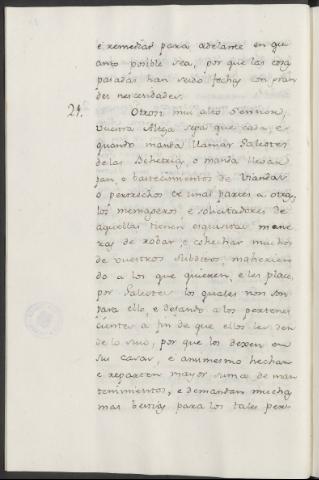 e remediar para adelante en qu
anto posible sea, por que las cosas
pasadas han seido fechas con gran
des nescesidades.
24. Otrosi mui alto Sennor,
vuestra Alteza sepa que cada, e
quando manda llamar Galeotes
de las Behetria, o manda llevar
pan, o bastecimientos de viandas
o pertrechos de unas partes a otras,
los mensageros e solicitadores de
aquellas tienen esquisitas mane
ras de robar, e cohechar muchos
de vuestros subditos, maherien
do a los que quieren, e les place,
por Galeotes los quales non son
para ello, e dejando a los pertenes
cientes a fin de que ellos les den
de lo suio, por que los dexen en
sus casas, e ansimesmo hechan
e reparten mayor suma de man
tenimientos, e demandan muchas
mas bestias para los tales per